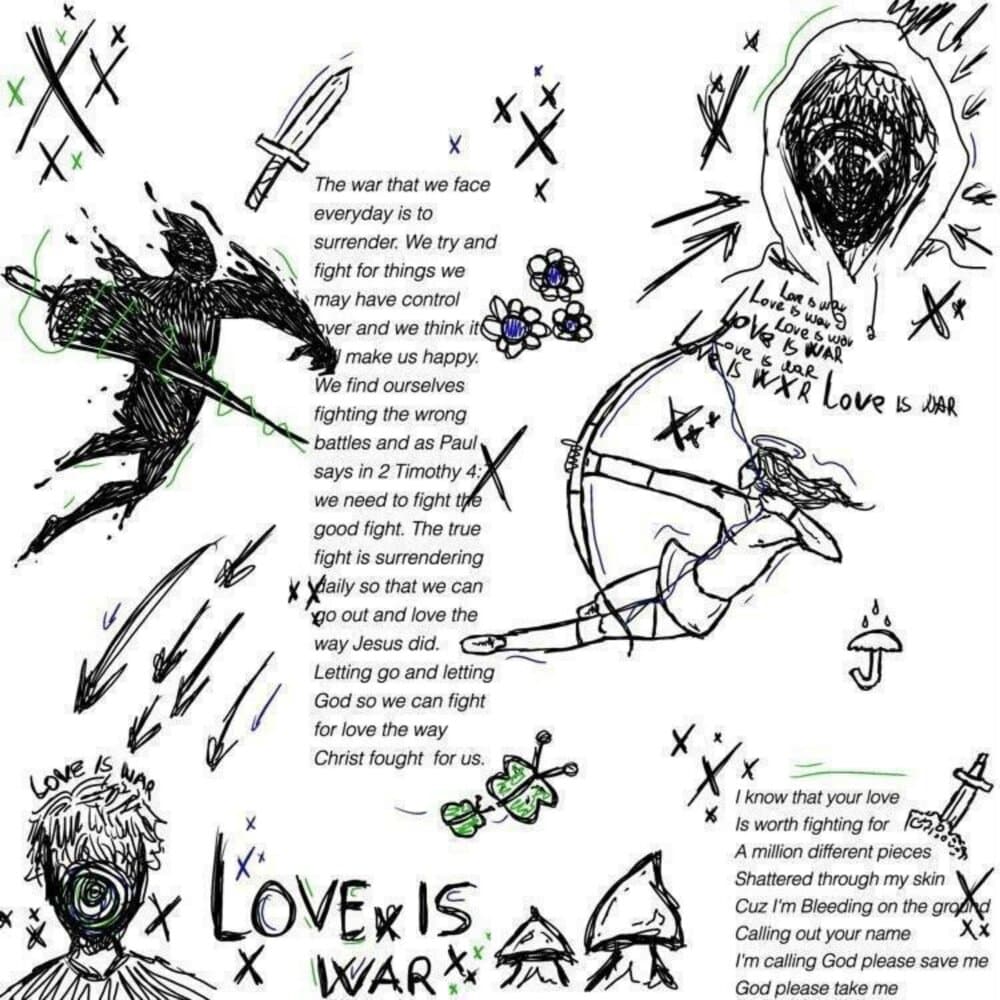 The war that we face
everyday is to
surrender. We try and
fight for things we
may have control
over and we think it
make us happy.
We find ourselves
fighting the wrong
battles and as Paul
says in 2 Timothy 4:
we need to fight the
good fight. The true
fight is surrendering
daily so that we can
go out and love the
way Jesus did.
Letting go and letting
God so we can fight
for love the way
Christ fought for us.
Love is way
Love is way
Love is way
Love is WAR
Love is WAR
Love IS WXR
Love IS WAR
LOVE IS WAR
LOVE IS
WAR
I know that your love
Is worth fighting for
A million different pieces
Shattered through my skin
Cuz I'm Bleeding on the ground
Calling out your name
I'm calling God please save me
God please take me